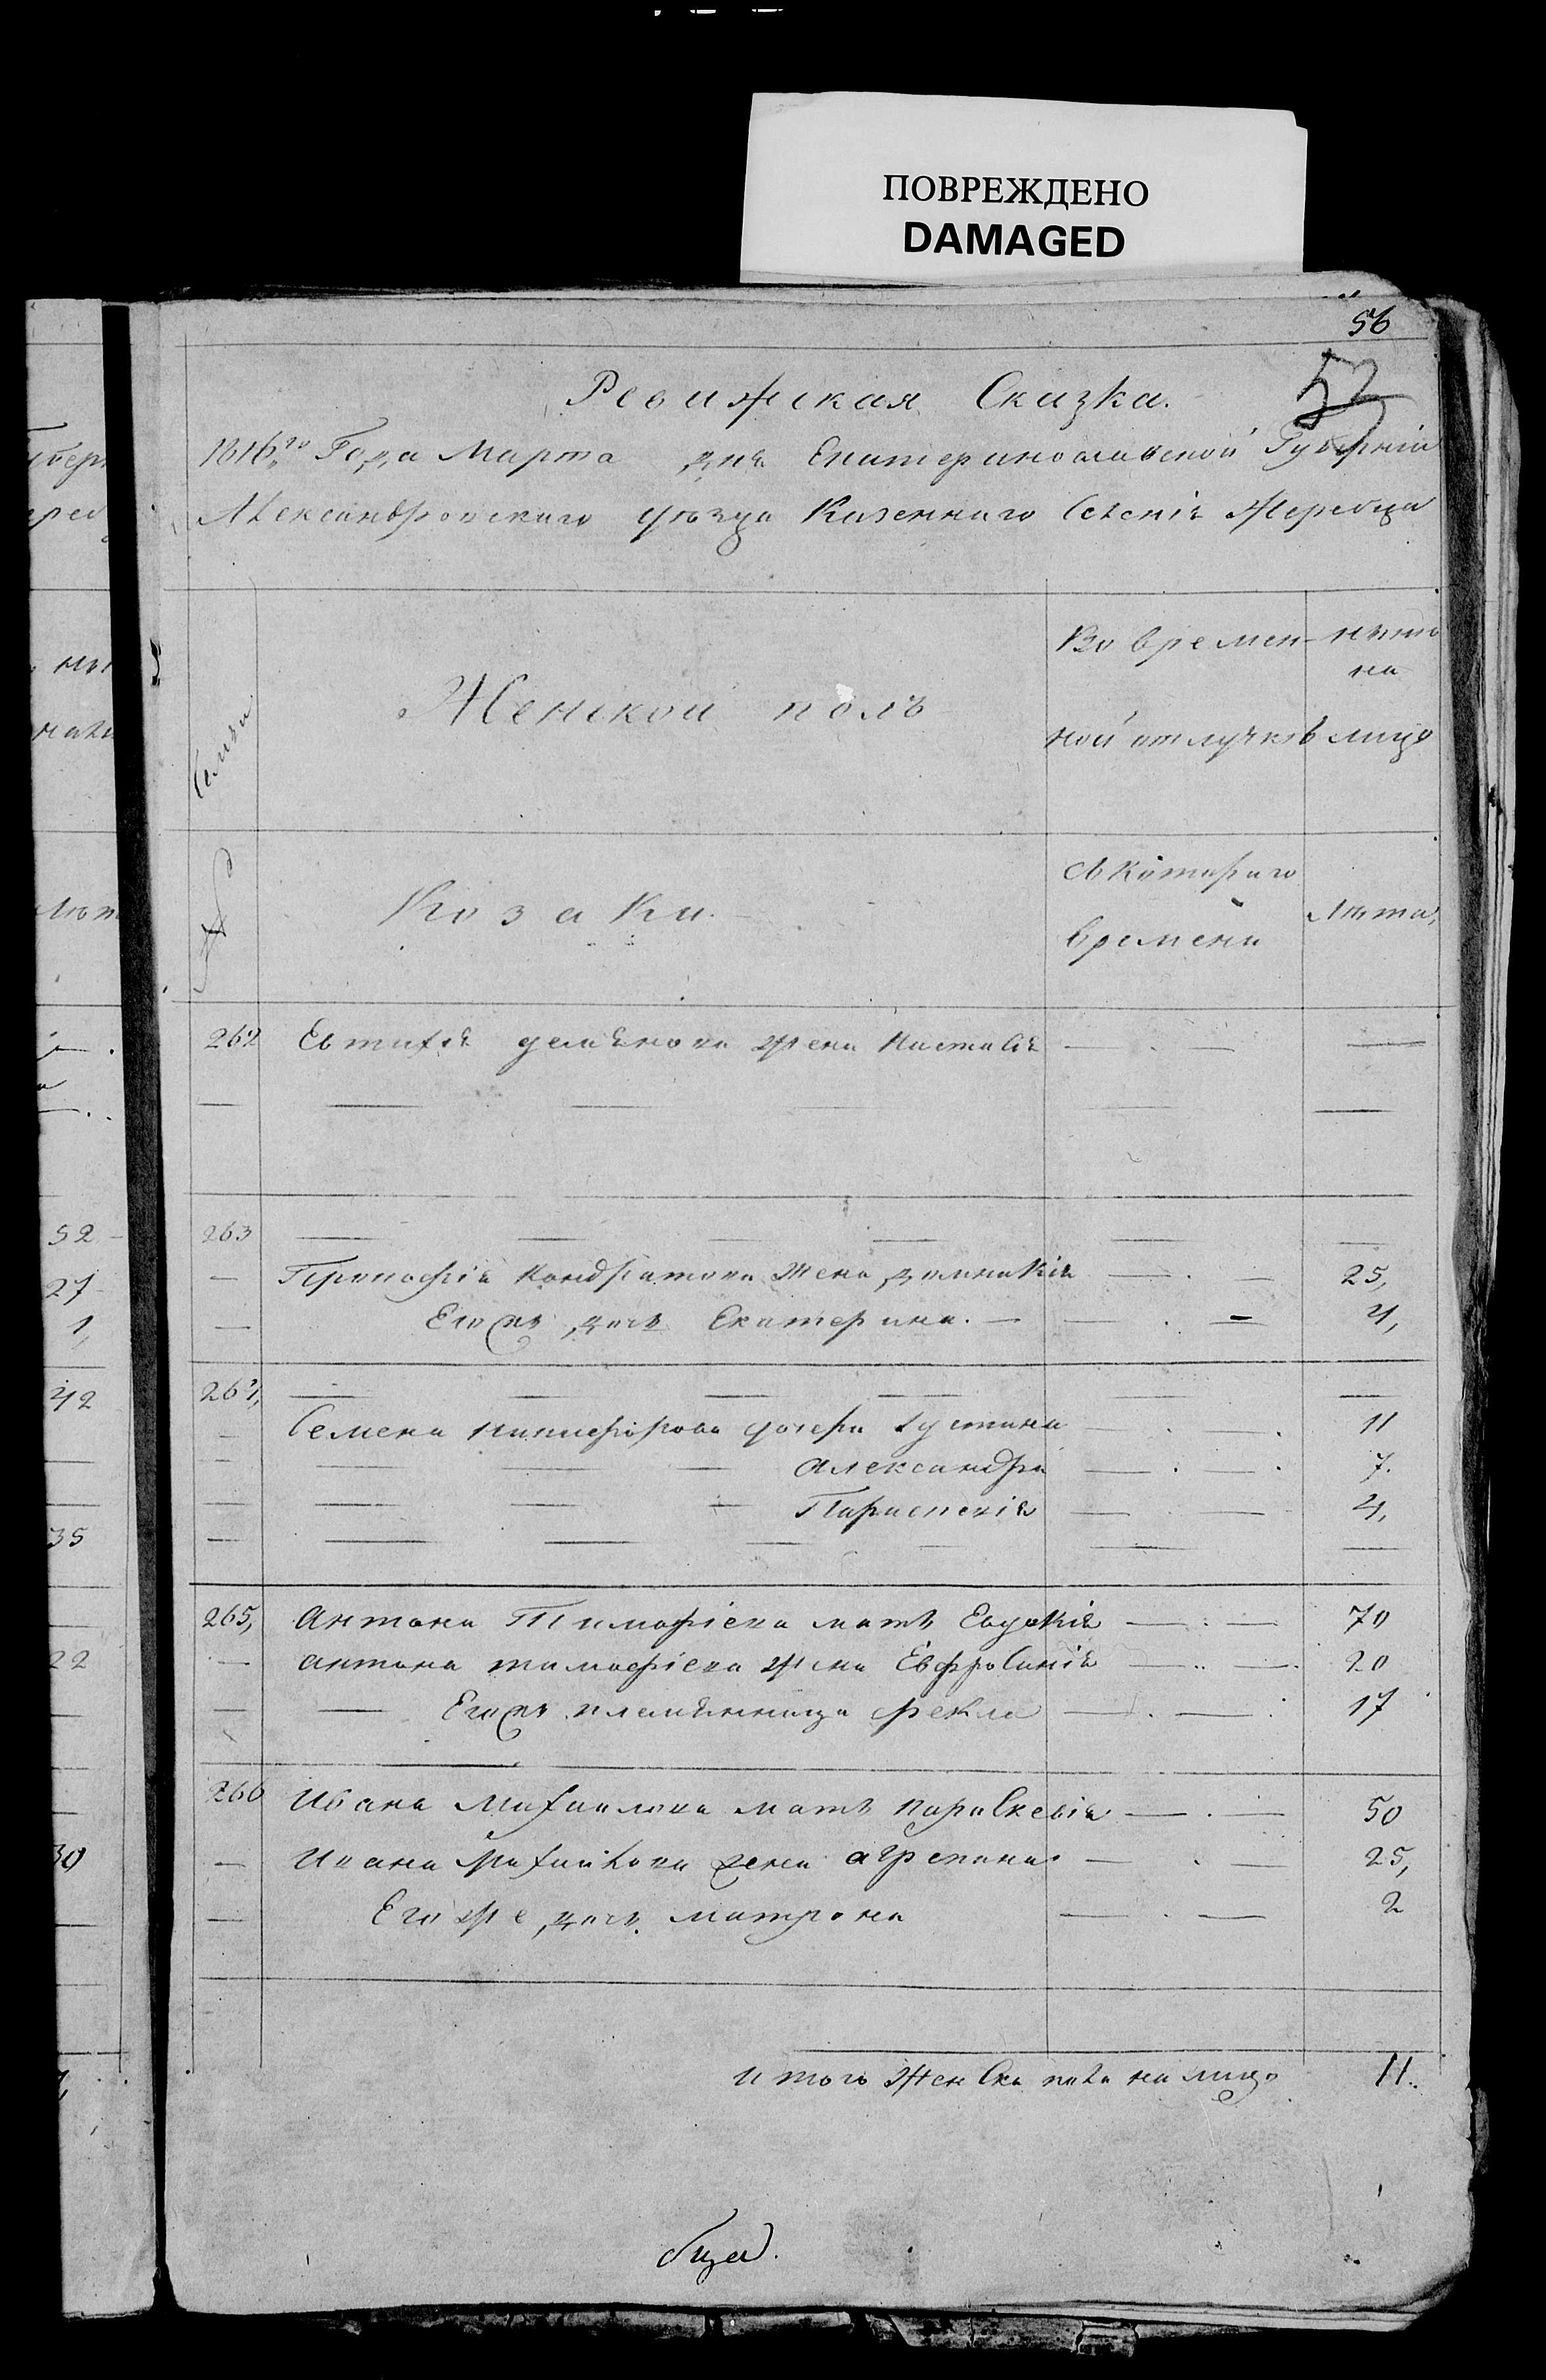 ПОВРЕЖДЕНО
DAMAGED
56
53
Ревижская Сказка.
1816го Года Марта дня Екатеринославской Губерніи
Александровскаго уѣзда Казеннаго Селенія Жеребца
Семьи
№
Женской полъ
Во времен-
ной отлучкѣ
нынѣ
на
лицо
Козаки.
съ котораго
времени
Лѣта,
262 Евтихѣя демянова жена Настасія
263
Прокофія Кондратова Жена домникія 25,
Егожъ дочь Екатерина. 4,
264,
Семена Никифорова дочери Іустина 11
Александра 7.
Параскевія 4,
265, Антона Тимофіева мать Евдокія 70
антона тимофіева жена Евфросинія 20
Егожъ племянница фекла 17
266 Ивана Михаилова мать параскевія 50
Ивана Михаилова жена агрепина 25,
Его же дочь матрона 2
итого Женска пола на лицо 11.
52
27
1,
42
35
22
30